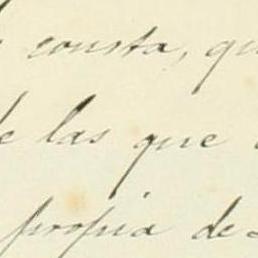 consta, qu
de las que
propia de